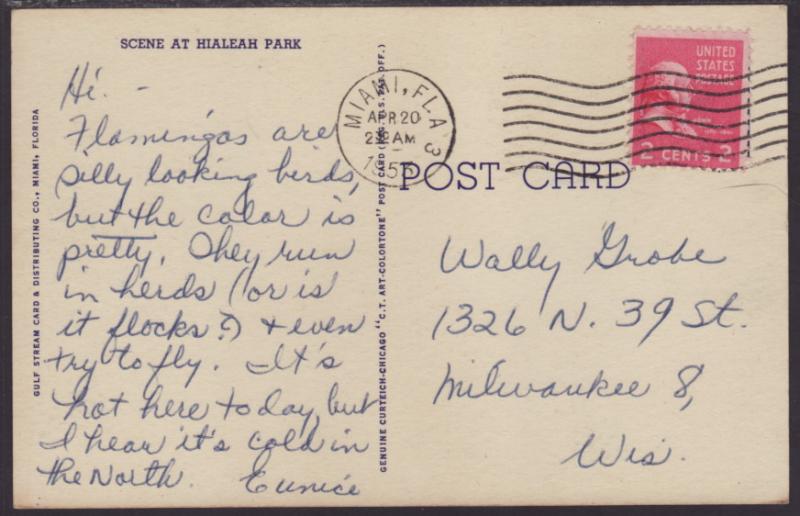 SCENE AT HIALEAH PARK
Hi. -
Flamingos are
silly looking birds,
but the color is
pretty. They run
in herds (or is
it flocks?) + even
try to fly. It's
hot here today, but
I hear it's cold in
the North. Eunice
GULF STREAM CARD & DISTRIBUTING CO., MIAMI, FLORIDA
GENUINE CURTEICH-CHICAGO "C.T. ART-COLORTONE" POST CARD (REG. U.S. PAT. OFF.)
MIAMI, FLA 3
APR 20
AM
UNITED
STATES
POSTAGE
2 CENTS 2
POST CARD
Wally Grobe
1326 N. 39 St.
Milwaukee 8,
Wis.